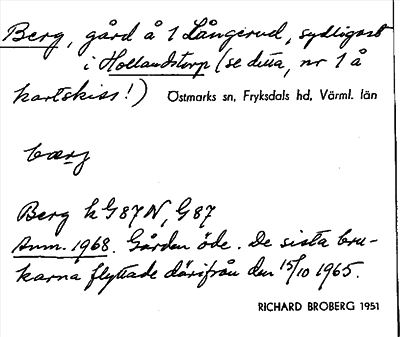 Berg, gård å 1 Långerud, sydligast
i Hollandstorp (se detta, nr 1 å
kartskiss!) Östmarks sn, Fryksdals hd, Värml. län
bærj
Berg kG87N, G87
Anm. 1968. Gården öde. De sista bru-
karna flyttade därifrån den 15/10 1965.
RICHARD BROBERG 1951